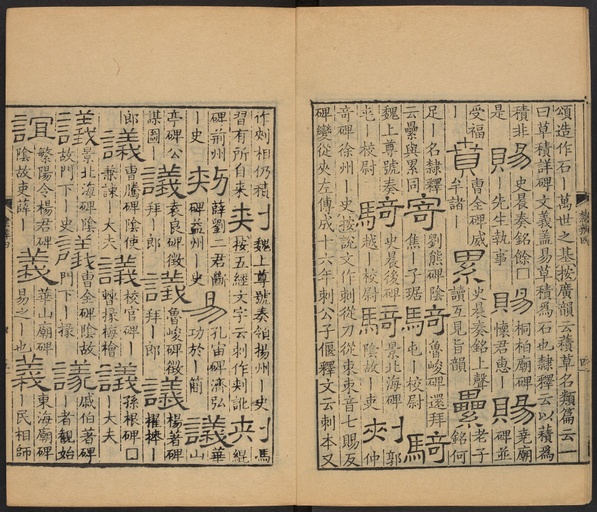 頌造作石丨萬世之基按廣韻云積草名類篇云一
曰草積詳碑文義蓋易草積為石也隸釋云以積為
積非 賜 史晨奏銘餘囗 賜 桐柏廟碑 賜 堯廟
是 賜 丨先生執事 賜 丨懷君恵丨 賜 碑並
受福 賁 曹全碑戚 累 史晨奏銘上聲 壘 老子
丨 牟諸丨 讀互見旨韻 銘何
足丨名隸釋 寄 劉熊碑陰 騎 魯峻碑還拜 騎
云壘與累同 焦丨子琚 屯丨校尉
魏上尊號奏 騎 史晨後碑 騎 景北海碑 刾 郭
屯丨校尉 騎 越丨校尉 陰故丨吏 夾 仲
奇碑徐州丨史按說文作刺從刀從朿朿音七賜反
碑變從夾左傳成十六年刺公子偃釋文云刺本又
作刾相仍積 刾 魏上尊號奏領揚州丨史 刾 馮
習有所自来 夾 按五經文字云刺作刾訛 夾 緄
碑荊州 刾 薛劉二君斷 易 孔宙碑濟弘 議 華
丨史 夾 碑益州丨史 功於丨簡 山
亭碑公 議 袁良碑徵 議 魯峻碑徵 議 楊著碑
謀圖 拜丨郎 拜丨郎 擢捧丨
郎 議 曹騰碑陰使 議 校官碑丨 議 孫根碑囗
兼諫丨大夫 諫掾梅檜 丨大夫
議 景北海碑陰 議 曹全碑陰故 議 戚伯著碑
故門下丨史 門下丨掾 丨者観始
誼 繁陽令楊君碑 義 華山廟碑 義 東海廟碑
陰故吏薛丨 易之丨也 丨民相師